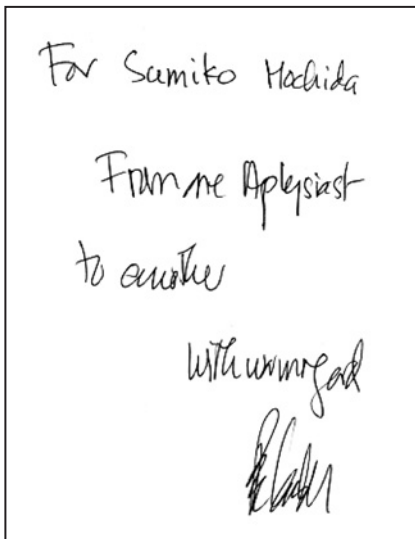 For Sumiko Mochida
From one Aplysiast
to another
with warm regard